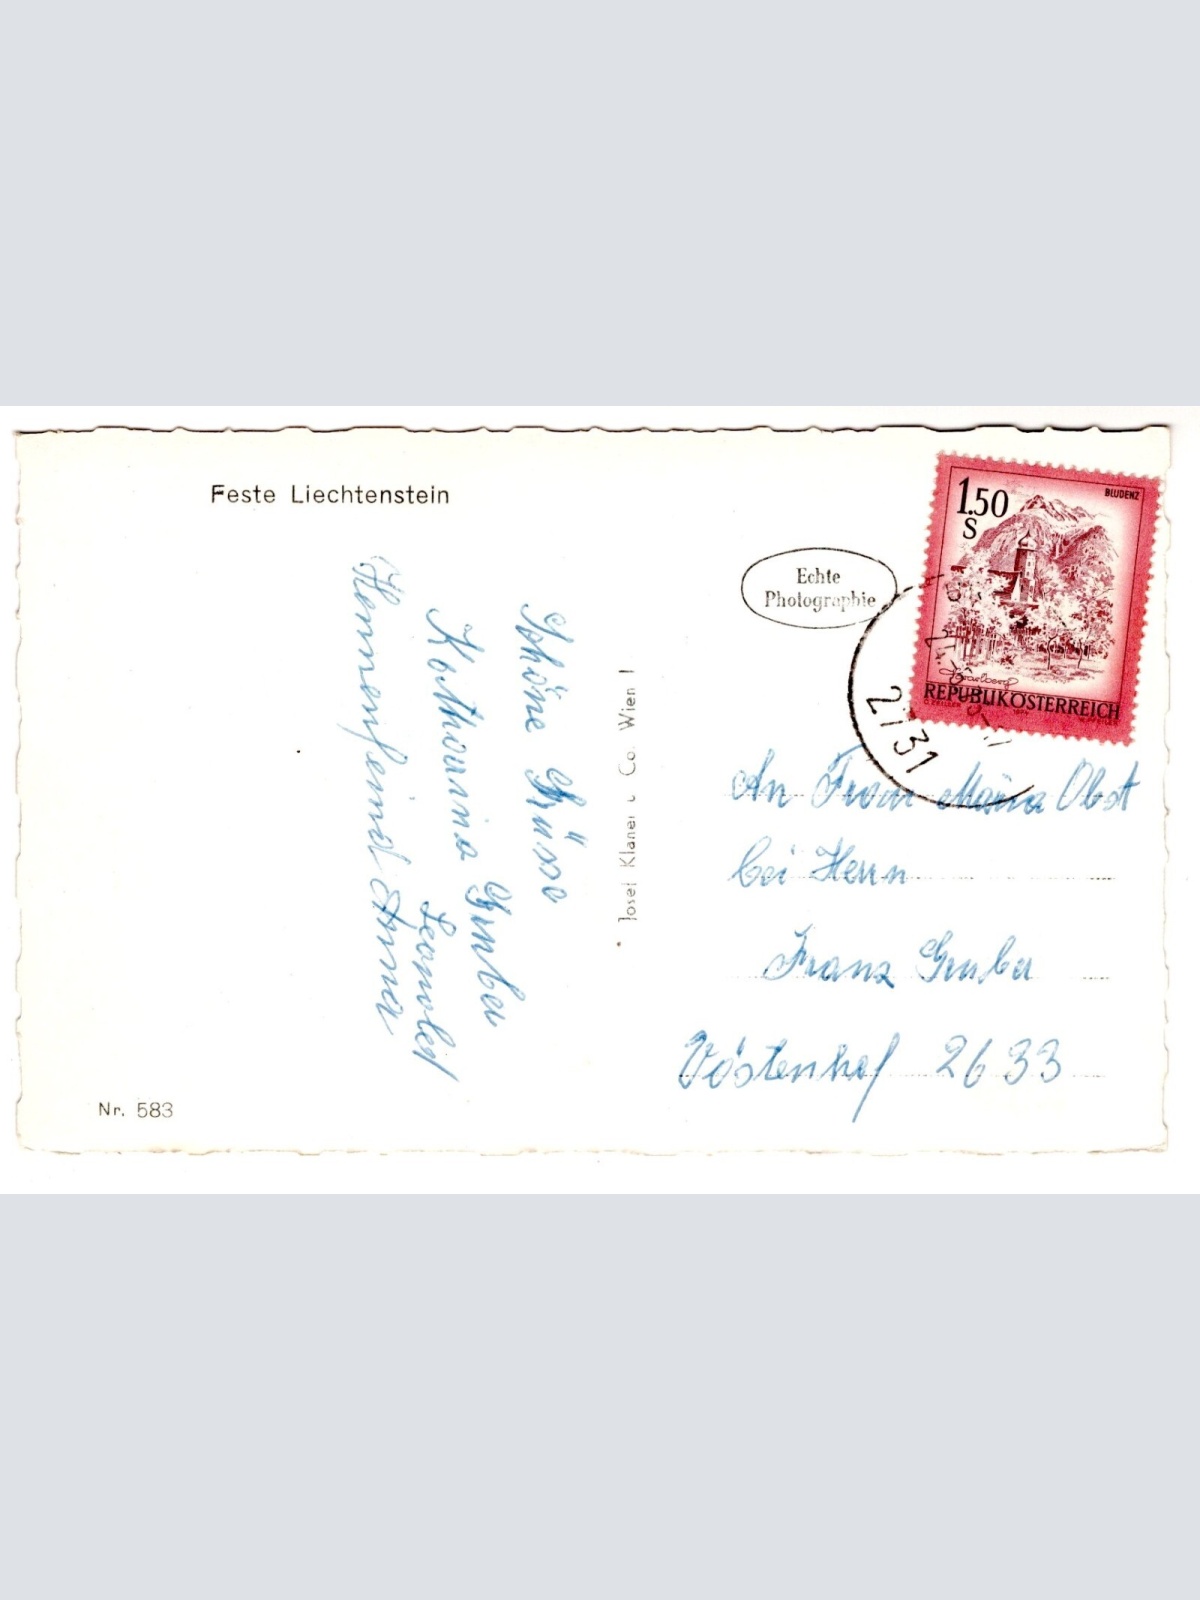 Feste Liechtenstein
Schöne Grüsse
Katharina Gruber
Leopold
Anna
Nr. 583
Josef Klaner u Co. Wien I
Echte
Photographie
1.50
S
BLUDENZ
Vorarlberg
REPUBLIK ÖSTERREICH
2731
An Frau Maria Obst
bei Herrn
Franz Gruber
Vöstenhof 2633